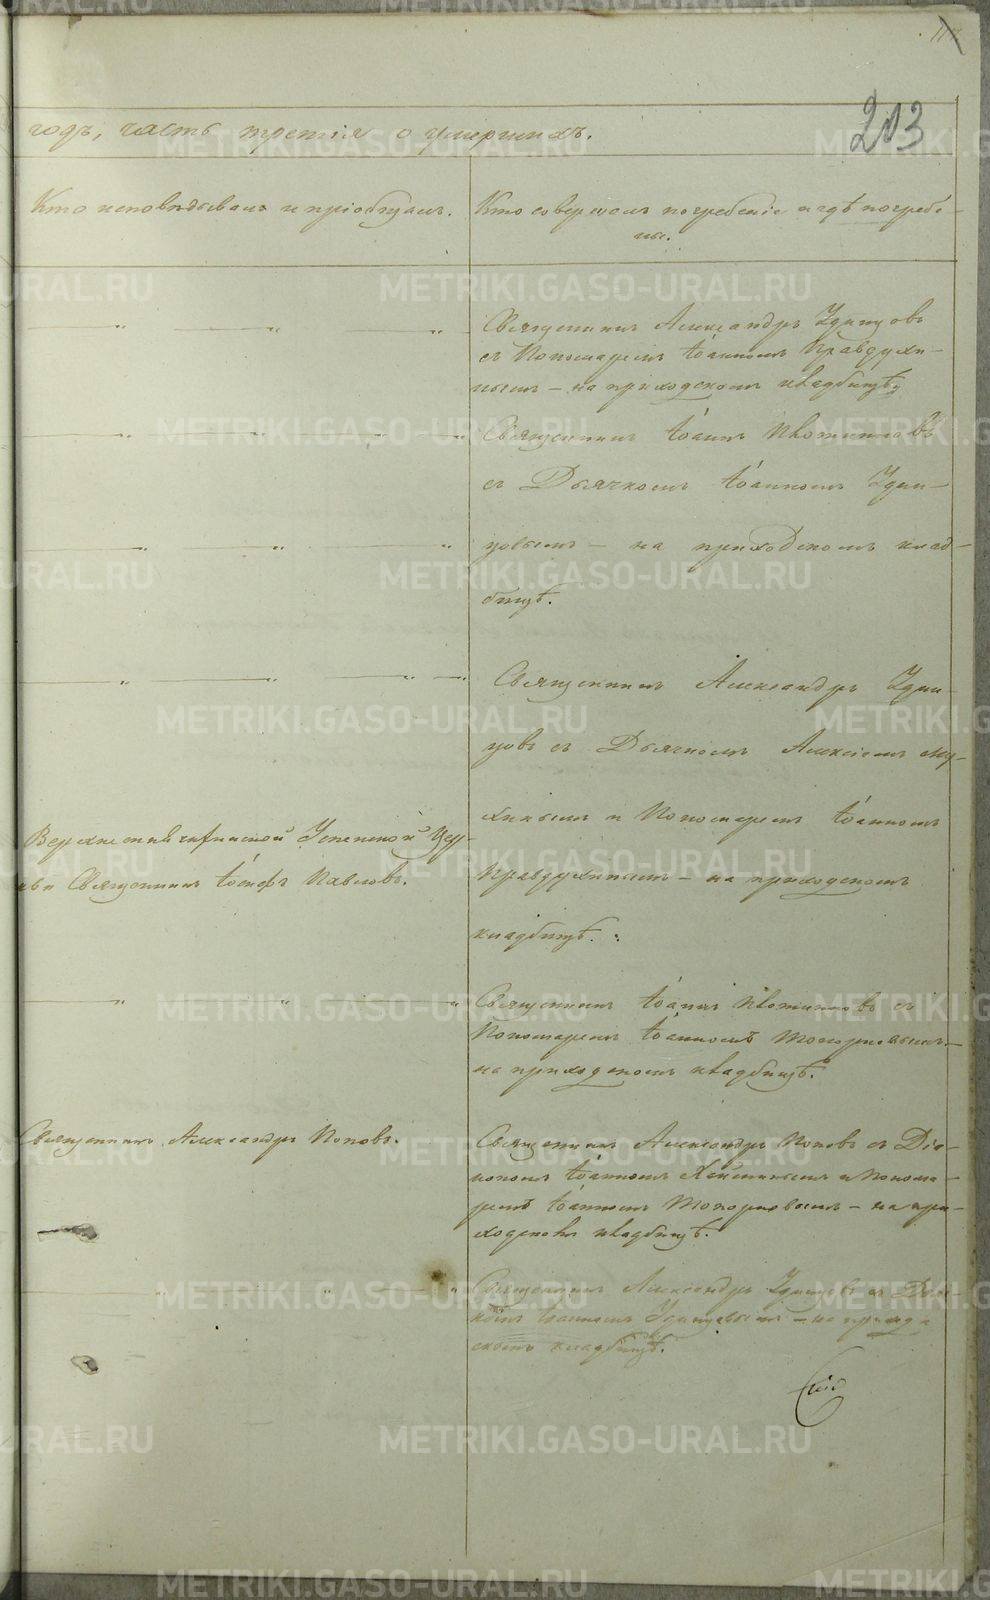 203
годъ, часть третія о умершихъ.
Кто исповѣдывалъ и пріобщалъ.
Кто совершалъ погребеніе и гдѣ погребе-
ны.
Священникъ Александръ Удинцовъ
съ Пономаремъ Іоанномъ Правдухи-
нымъ – на приходскомъ кладбищѣ
Священникъ Іоаннъ Ивотинковъ
съ Дьячкомъ Іоанномъ Удин-
цовымъ – на приходскомъ клад-
бищѣ.
Священникъ Александръ Удин-
цовъ съ Дьячкомъ Алексіемъ Му-
хинымъ и Пономаремъ Іоанномъ
Правдухинымъ – на приходскомъ
кладбищѣ.
Успенской Цер-
кви Священникъ Іосифъ Павловъ.
Священникъ Іоаннъ съ
Пономаремъ Іоанномъ Топорковымъ –
на приходскомъ кладбищѣ.
Священникъ Александръ Поповъ.
Священникъ Александръ Поповъ съ Діа-
кономъ Іоанномъ и Понома-
ремъ Іоанномъ Топорковымъ – на при-
ходскомъ кладбищѣ.
Священникъ Александръ Удинцовъ съ Дья-
комъ Іоанномъ Удинцовымъ – на приход
скомъ кладбищѣ.
METRIKI.GASO-URAL.RU